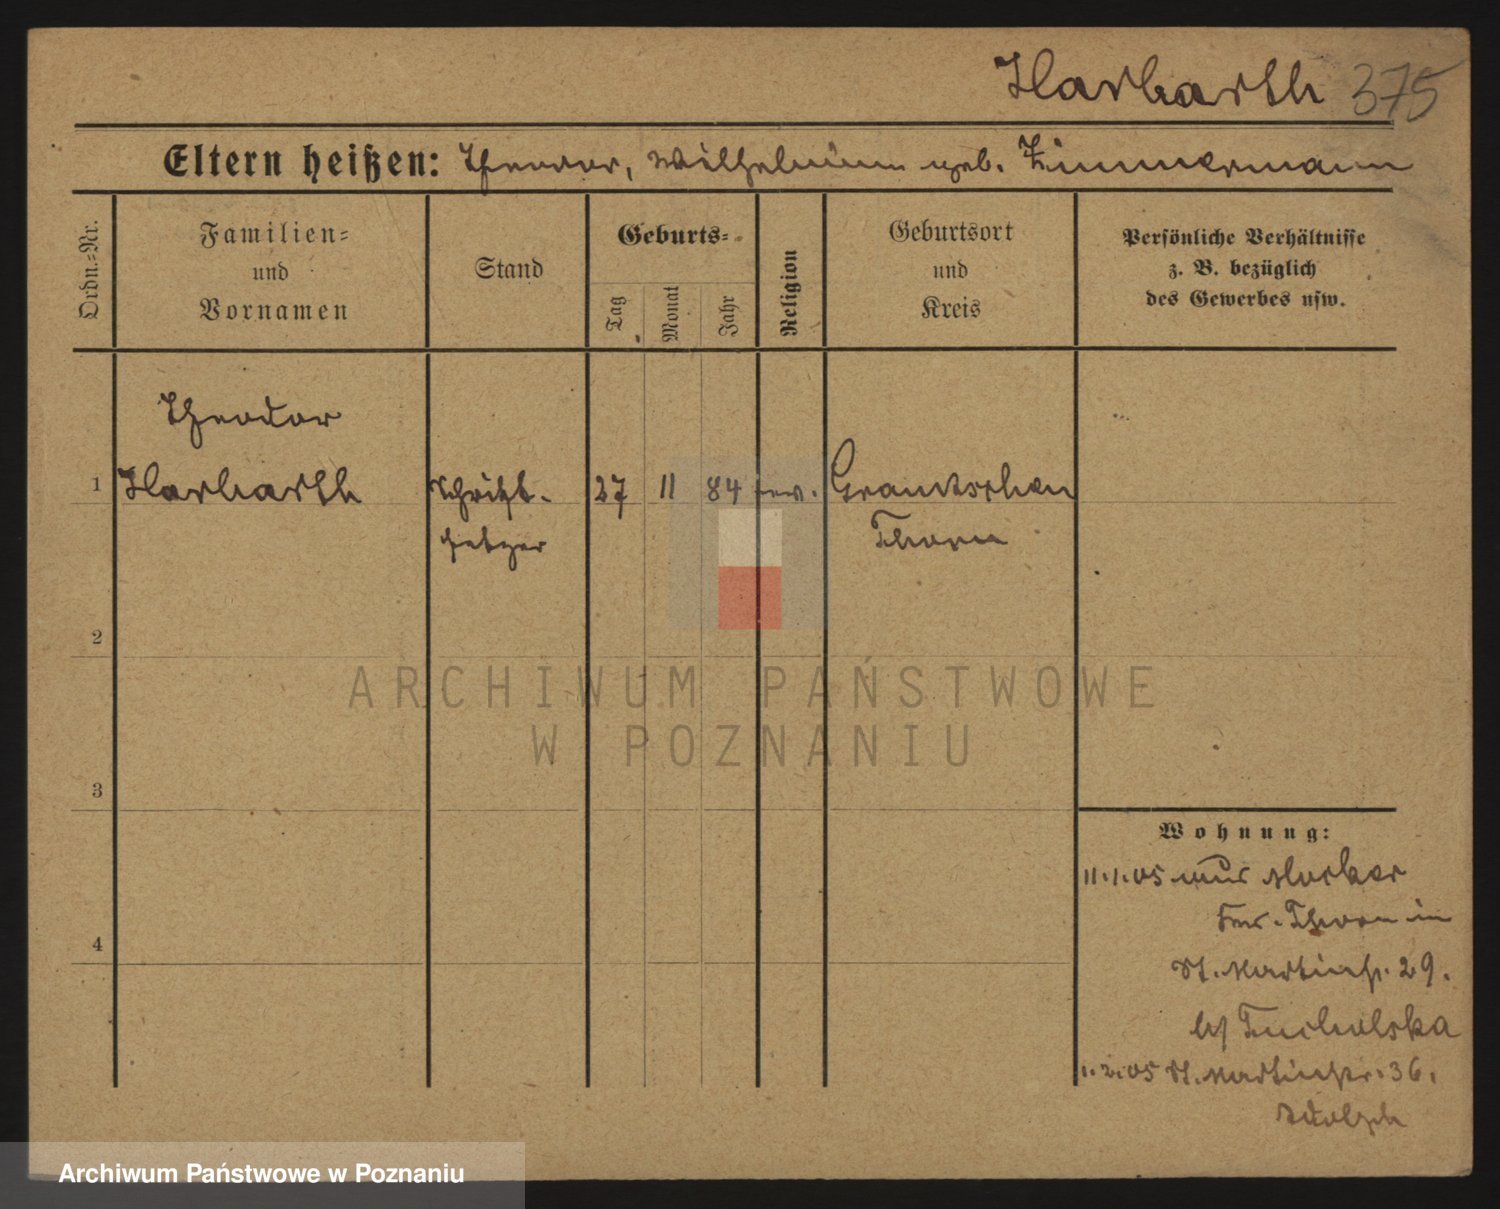 Harbarth 375
Eltern heißen: Theodor, Wilhelmine geb. Zimmermann
Ordn.-Nr.
Familien- und Vornamen
Stand
Geburts-
Tag
Monat
Jahr
Religion
Geburtsort und Kreis
Persönliche Verhältnisse
z. B. bezüglich
des Gewerbes usw.
Theodor
1 Harbarth Schrift- 27 11 84 ev. Gramtschen
setzer Thorn
2
ARCHIWUM PAŃSTWOWE
W POZNANIU
3
Wohnung:
11.1.05 aus Mocker
Thorn in
4
St. Martinstr. 29.
b/ Tucholska
1.2.05 St. Martinstr. 36.
Adolph
Archiwum Państwowe w Poznaniu